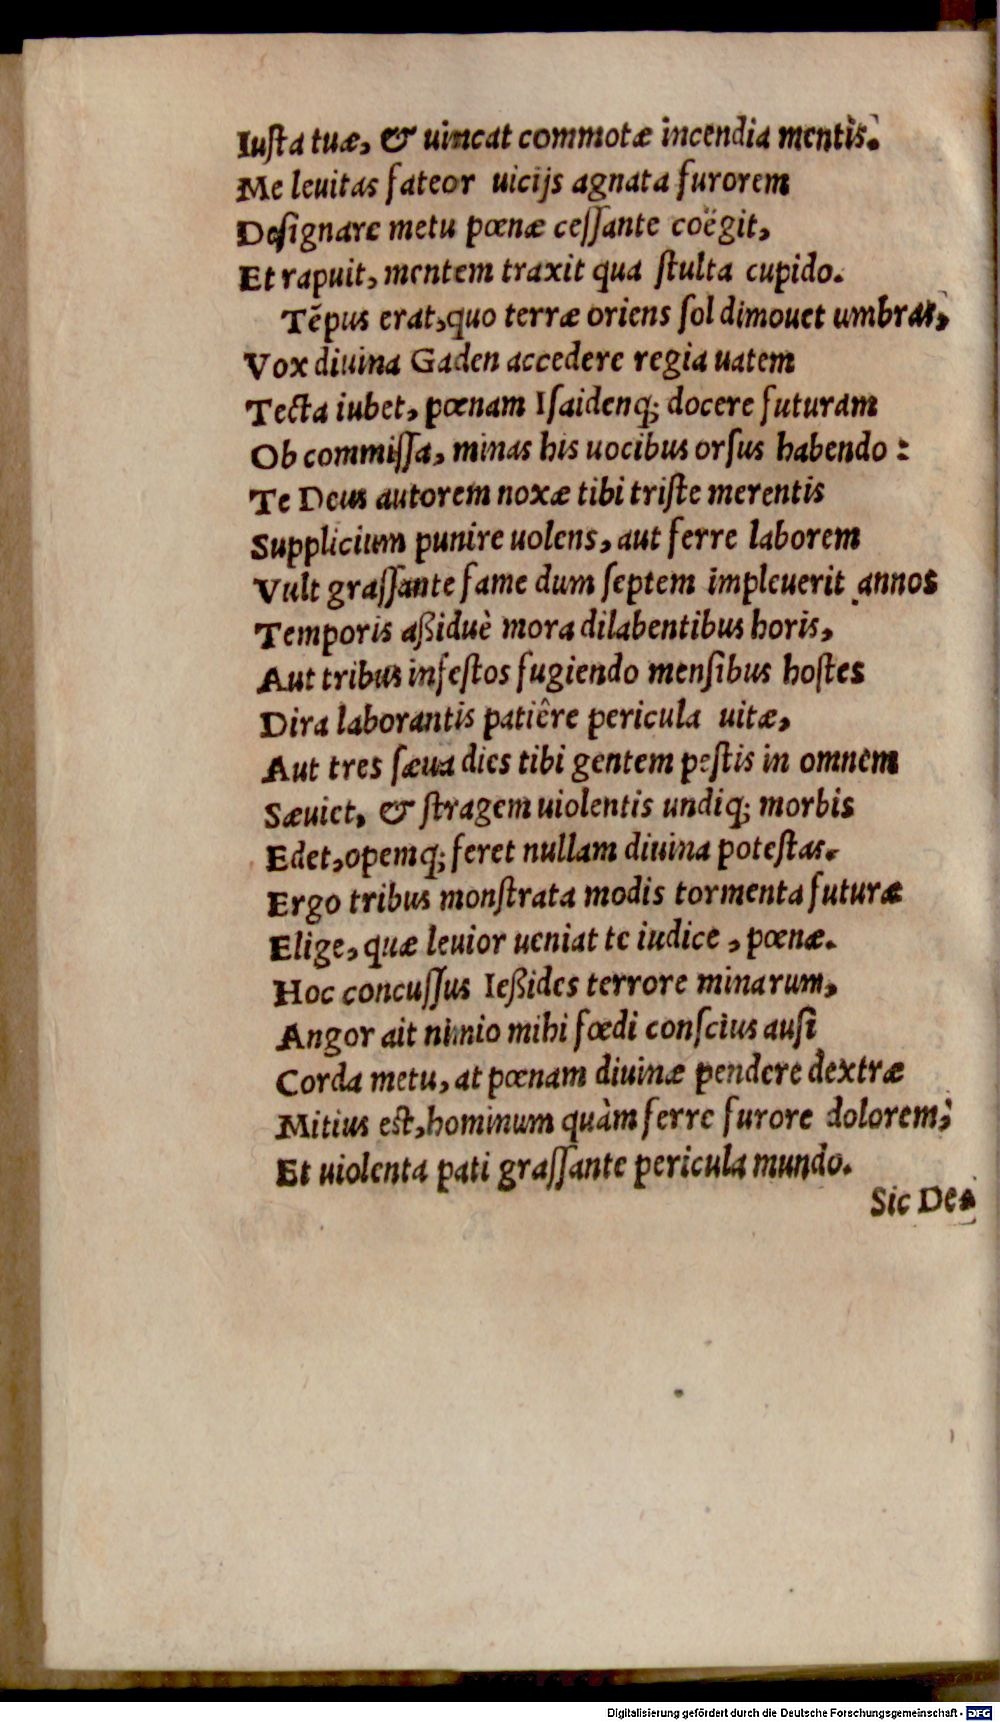 Iuſta tuæ, & uincat commotæ incendia mentis.
Me leuitas fateor uicijs agnata furorem
Deſignare metu pœnæ ceſſante coëgit,
Et rapuit, mentem traxit qua ſtulta cupido.
Tẽpus erat, quo terræ oriens ſol dimouet umbras,
Vox diuina Gaden accedere regia uatem
Tecta iubet, pœnam Iſaidenq; docere futuram
Ob commiſſa, minas his uocibus orſus habendo:
Te Deus autorem noxæ tibi triſte merentis
Supplicium punire uolens, aut ferre laborem
Vult graſſante fame dum ſeptem impleuerit annos
Temporis aßiduè mora dilabentibus horis,
Aut tribus infeſtos fugiendo menſibus hoſtes
Dira laborantis patiêre pericula uitæ,
Aut tres ſæua dies tibi gentem peſtis in omnem
Sæuiet, & ſtragem uiolentis undiq; morbis
Edet, opemq; feret nullam diuina poteſtas.
Ergo tribus monſtrata modis tormenta futuræ
Elige, quæ leuior ueniat te iudice, pœnæ.
Hoc concuſſus Ießides terrore minarum,
Angor ait nimio mihi fœdi conſcius auſi
Corda metu, at pœnam diuinæ pendere dextræ
Mitius est, hominum quàm ferre furore dolorem,
Et uiolenta pati graſſante pericula mundo.
Sic De⸗
Digitalisierung gefördert durch die Deutsche Forschungsgemeinschaft - DFG